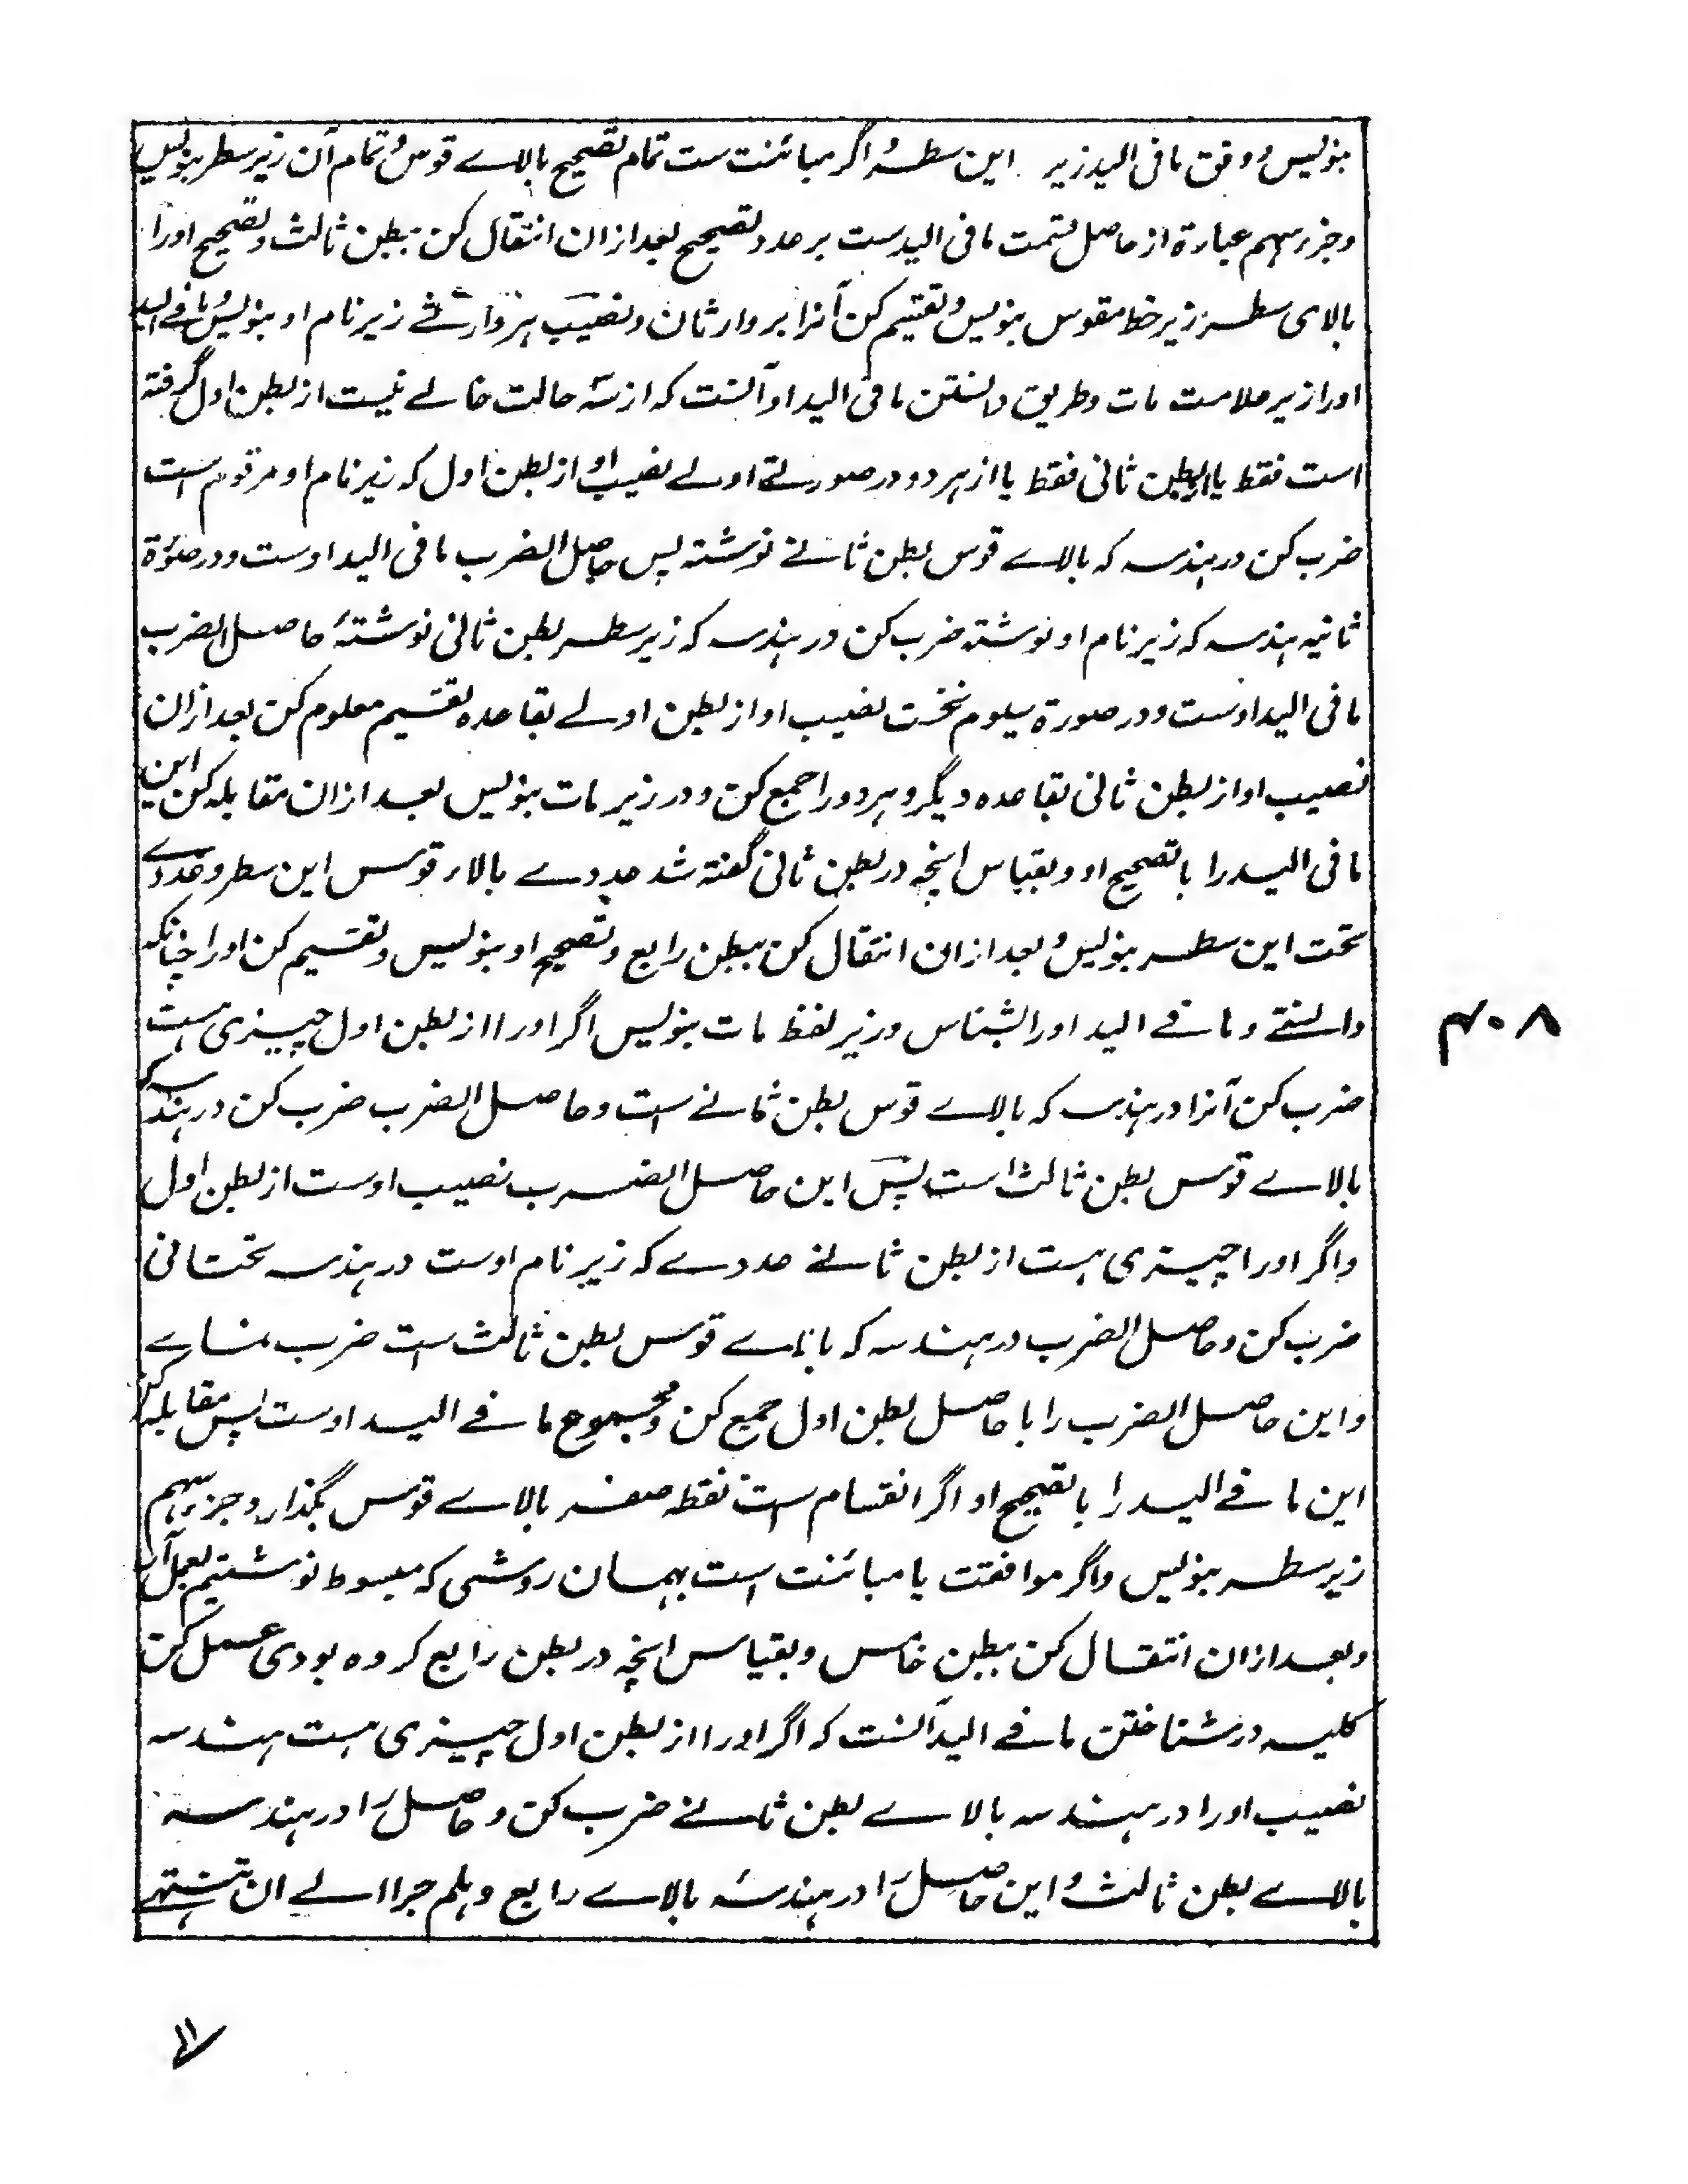 بنویس و وفق ما فی الید زیر این سطر و اگر مبائنت ست تمام تصحیح بالاے قوس و تمام آن زیر سطر بنویس
و جزر سهم عبارة از حاصل قسمت ما فی الید ست بر عدد تصحیح بعد ازان انتقال کن ببطن ثالث و تصحیح او را
بالای سطر زیر خط مقوس بنویس و تقسیم کن آنرا بر وارثان و نصیب هر وارثے زیر نام او بنویس و ما فے الید
او را زیر علامت مات و طریق دانستن ما فی الید او آنست که از سه حالت خالے نیست از بطن اول گرفته
است فقط یا از بطن ثانی فقط یا از هر دو در صورتے اولے نصیب او از بطن اول که زیر نام او مرقوم است
ضرب کن در هندسه که بالاے قوس بطن ثانے نوشته پس حاصل الضرب ما فی الید اوست و در صورة
ثانیه هندسه که زیر نام او نوشته ضرب کن در هندسه که زیر سطر بطن ثانی نوشتۂ حاصل الضرب
ما فی الید اوست و در صورة سیوم نخست نصیب او از بطن اولے بقاعده تقسیم معلوم کن بعد ازان
نصیب او از بطن ثانی بقاعده دیگر و هر دو را جمع کن و در زیر مات بنویس بعد ازان مقابله کن این
ما فی الید را با تصحیح او و بقیاس انچه در بطن ثانی گفته شد عددے بالاء قوس این سطر و عددے
تحت این سطر بنویس و بعد ازان انتقال کن ببطن رابع و تصحیح او بنویس و تقسیم کن او را چنانکه
دانستے و ما فے الید او را بشناس و زیر لفظ مات بنویس اگر او را از بطن اول چیزی هست
ضرب کن آنرا در هندسه که بالاے قوس بطن ثانے ست و حاصل الضرب ضرب کن در هندسه که
بالاے قوس بطن ثالث است پس این حاصل الضرب نصیب اوست از بطن اول
و اگر او را چیزی هست از بطن ثانے عددے که زیر نام اوست در هندسه تحتانی
ضرب کن و حاصل الضرب در هندسه که بالاے قوس بطن ثالث ست ضرب نماے
و این حاصل الضرب را با حاصل بطن اول جمع کن و مجموع ما فے الید اوست پس مقابله کن
این ما فے الید را با تصحیح او اگر انقسام ست نقطه صفر بالاے قوس بگذار و جزء سهم
زیر سطر بنویس و اگر موافقت یا مبائنت است بهمان روشی که مبسوط نوشتیم بعمل آر
و بعد ازان انتقال کن ببطن خامس و بقیاس انچه در بطن رابع کرده بودی عمل کن
کلیه در شناختن ما فے الید آنست که اگر او را از بطن اول چیزی هست هندسه
نصیب او را در هندسه بالاے بطن ثانے ضرب کن و حاصل را در هندسه
بالاے بطن ثالث و این حاصل را در هندسۂ بالاے رابع و هلم جرا الے ان تنتهے
۴۰۸